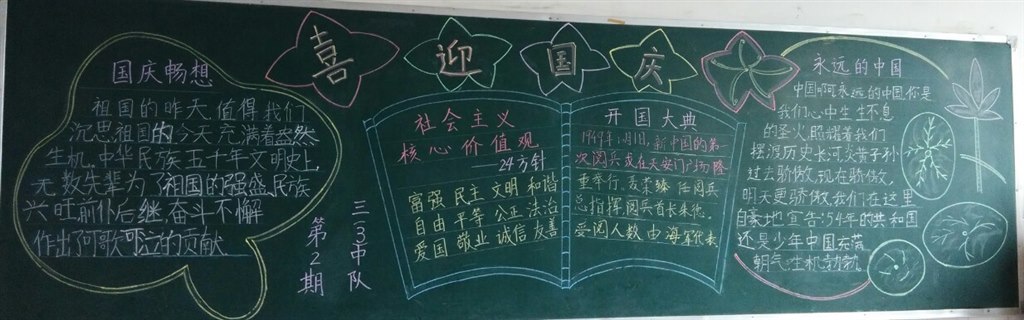 喜迎国庆
国庆畅想
祖国的昨天值得我们
沉思祖国的今天充满着盎然
生机.中华民族五十年文明史上,
无数先辈为了祖国的强盛民族
兴旺前仆后继.奋斗不懈
作出了可歌可泣的贡献.
三3中队
第2期
社会主义
核心价值观
24方针
富强 民主 文明 和谐
自由 平等 公正 法治
爱国 敬业 诚信 友善
开国大典
1949年10月1日,新中国的第一
次阅兵式在天安门广场隆
重举行.聂荣臻任阅兵
总指挥.阅兵首长朱德.
受阅人数由海军代表
永远的中国
中国啊永远的中国,你是
我们心中生生不息
的圣火照耀着我们
摆渡历史长河,炎黄子孙
过去骄傲,现在骄傲,
明天更骄傲我们在这里
自豪地宣告:54年的共和国
还是少年中国充满
朝气.生机勃勃